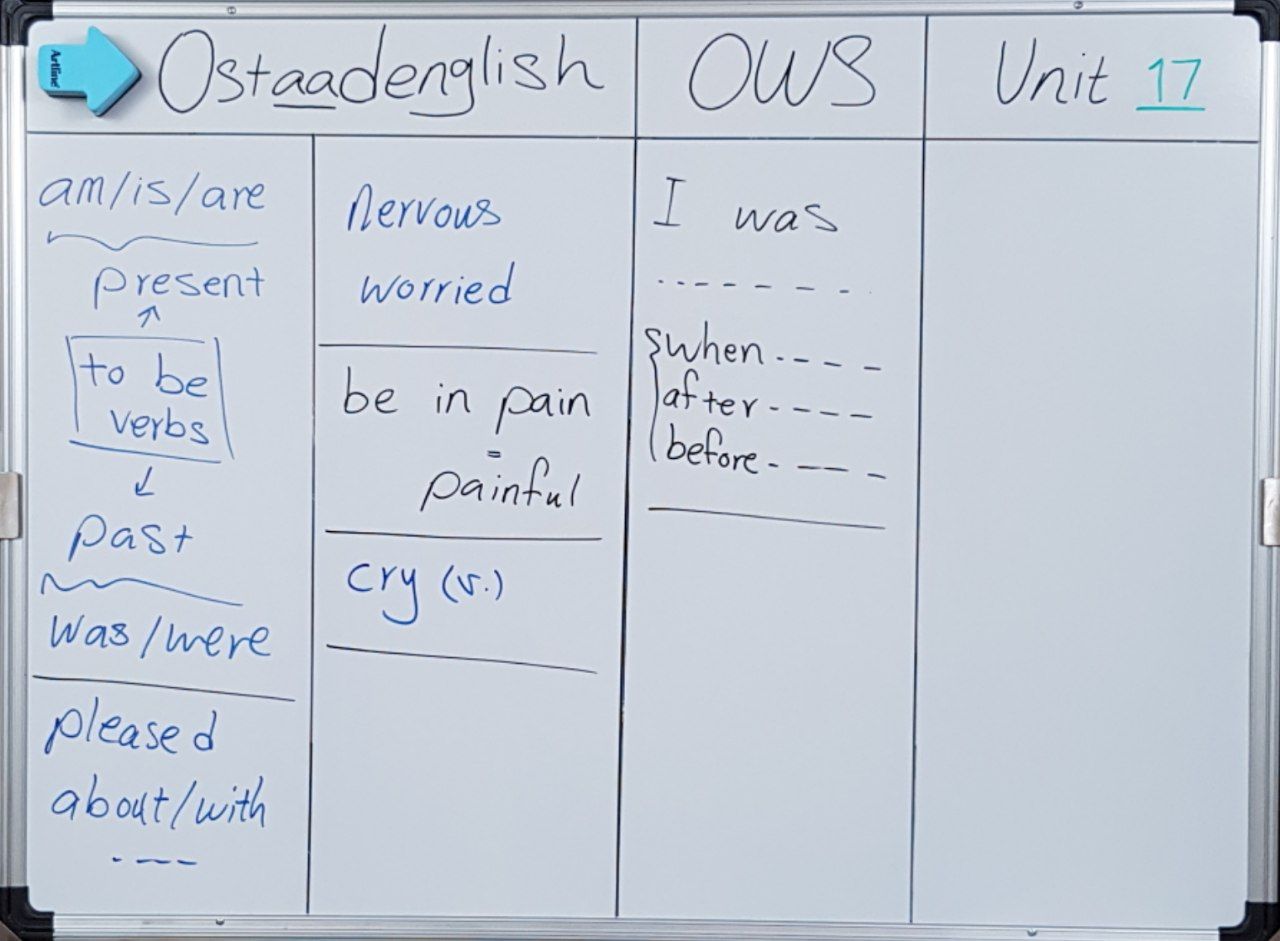 Artline
Ostaadenglish
OWS
Unit 17
am/is/are
present
to be
verbs
past
was/were
pleased
about/with
----
nervous
worried
be in pain
=
painful
cry (v.)
I was
-------
when----
after----
before----